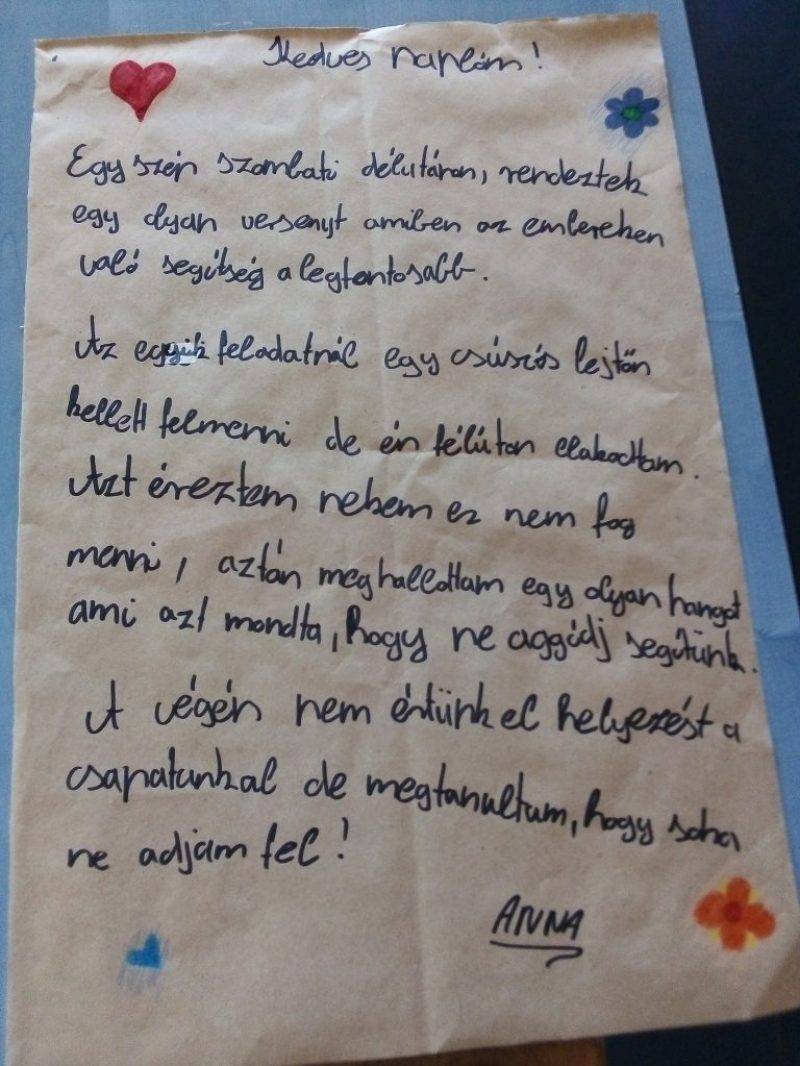 Kedves naplóm!
Egy szép szombati délutánon, rendeztek
egy olyan versenyt amiben az embereken
való segítség a legfontosabb.
Az egyik feladatnál egy csúszós lejtőn
kellett felmenni de én félúton elakadtam.
Azt éreztem nekem ez nem fog
menni, aztán meghallottam egy olyan hangot
ami azt mondta, hogy ne aggódj segítünk.
A végén nem értünk el helyezést a
csapatunkal de megtanultum, hogy soha
ne adjam fel!
ANNA